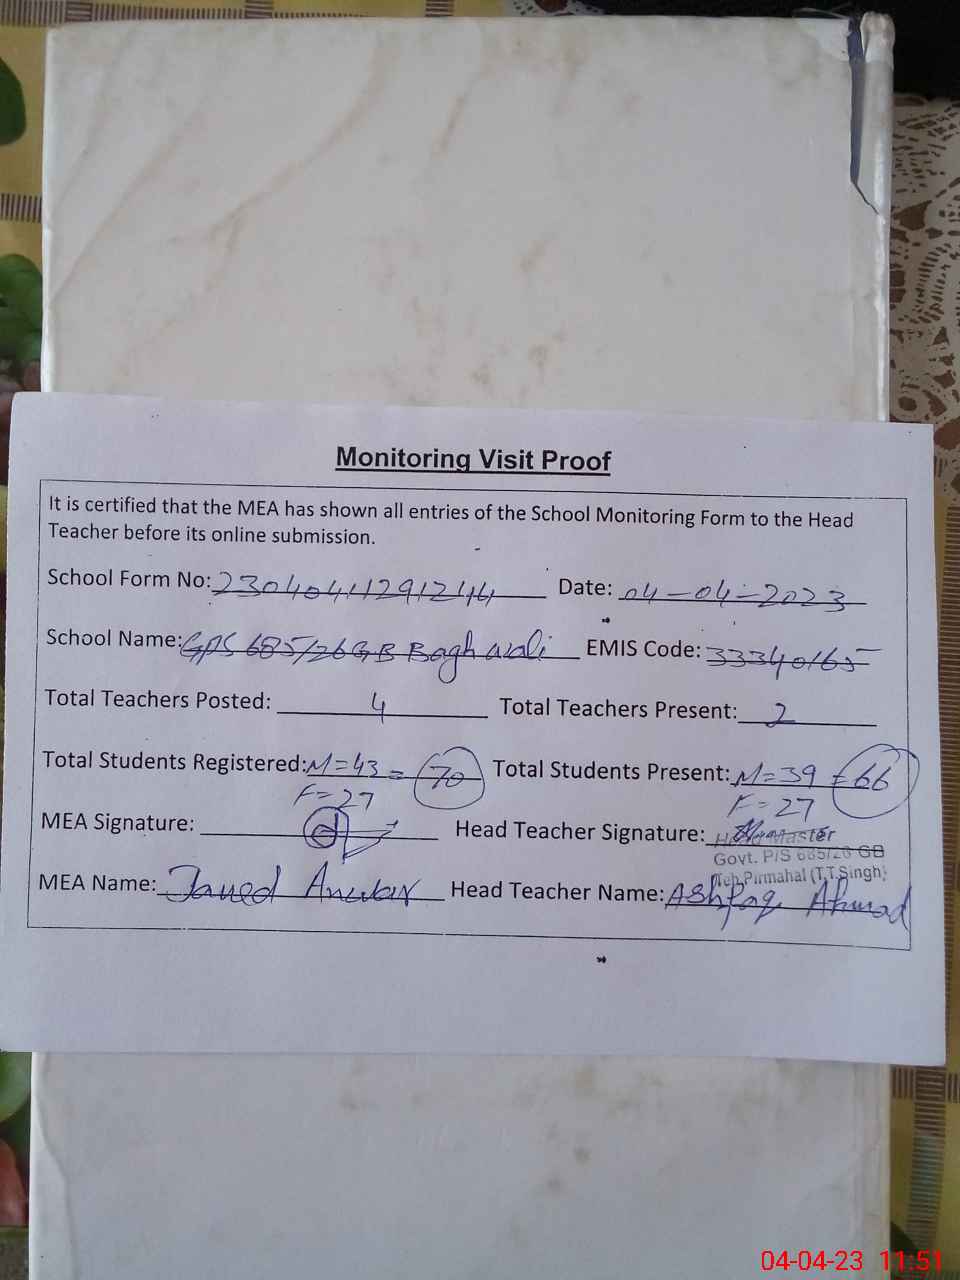 Monitoring Visit Proof
It is certified that the MEA has shown all entries of the School Monitoring Form to the Head
Teacher before its online submission.
School Form No: 23040411291244 Date: 04-04-2023
School Name: GPS 685/26 GB Baghwali EMIS Code: 33340165
Total Teachers Posted: 4 Total Teachers Present: 2
Total Students Registered: M=43 = 70 Total Students Present: M=39 = 66
F=27 F=27
MEA Signature: Head Teacher Signature:
Head Master
Govt. P/S 685/26 GB
Teh.Pirmahal (T.T.Singh)
MEA Name: Javed Anwar Head Teacher Name: Ashfaq Ahmad
04-04-23 11:51